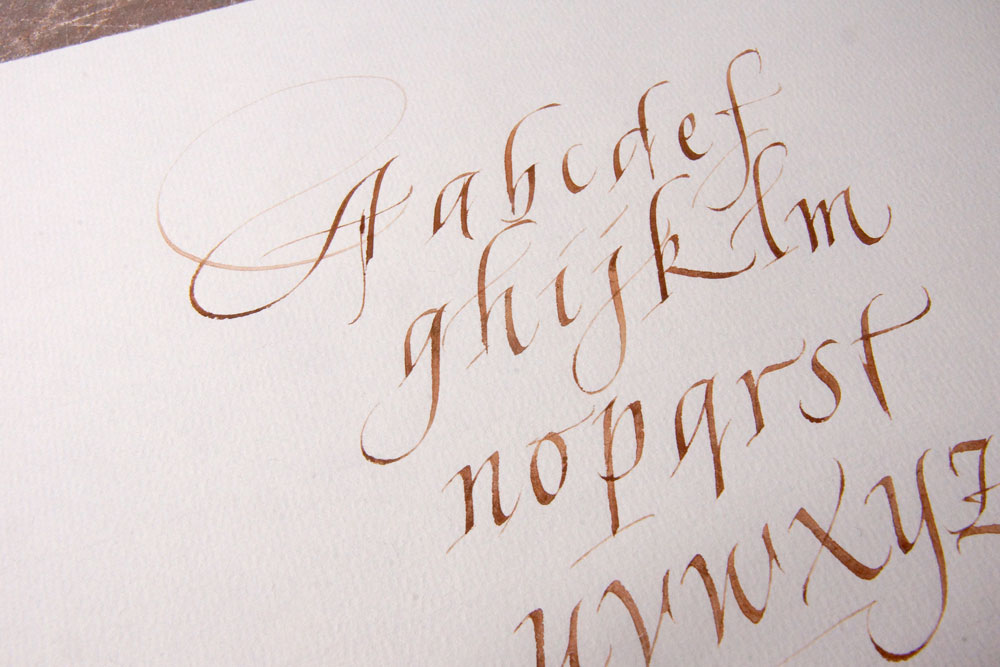 Aabcdef
ghijklm
nopqrst
uvwxyz